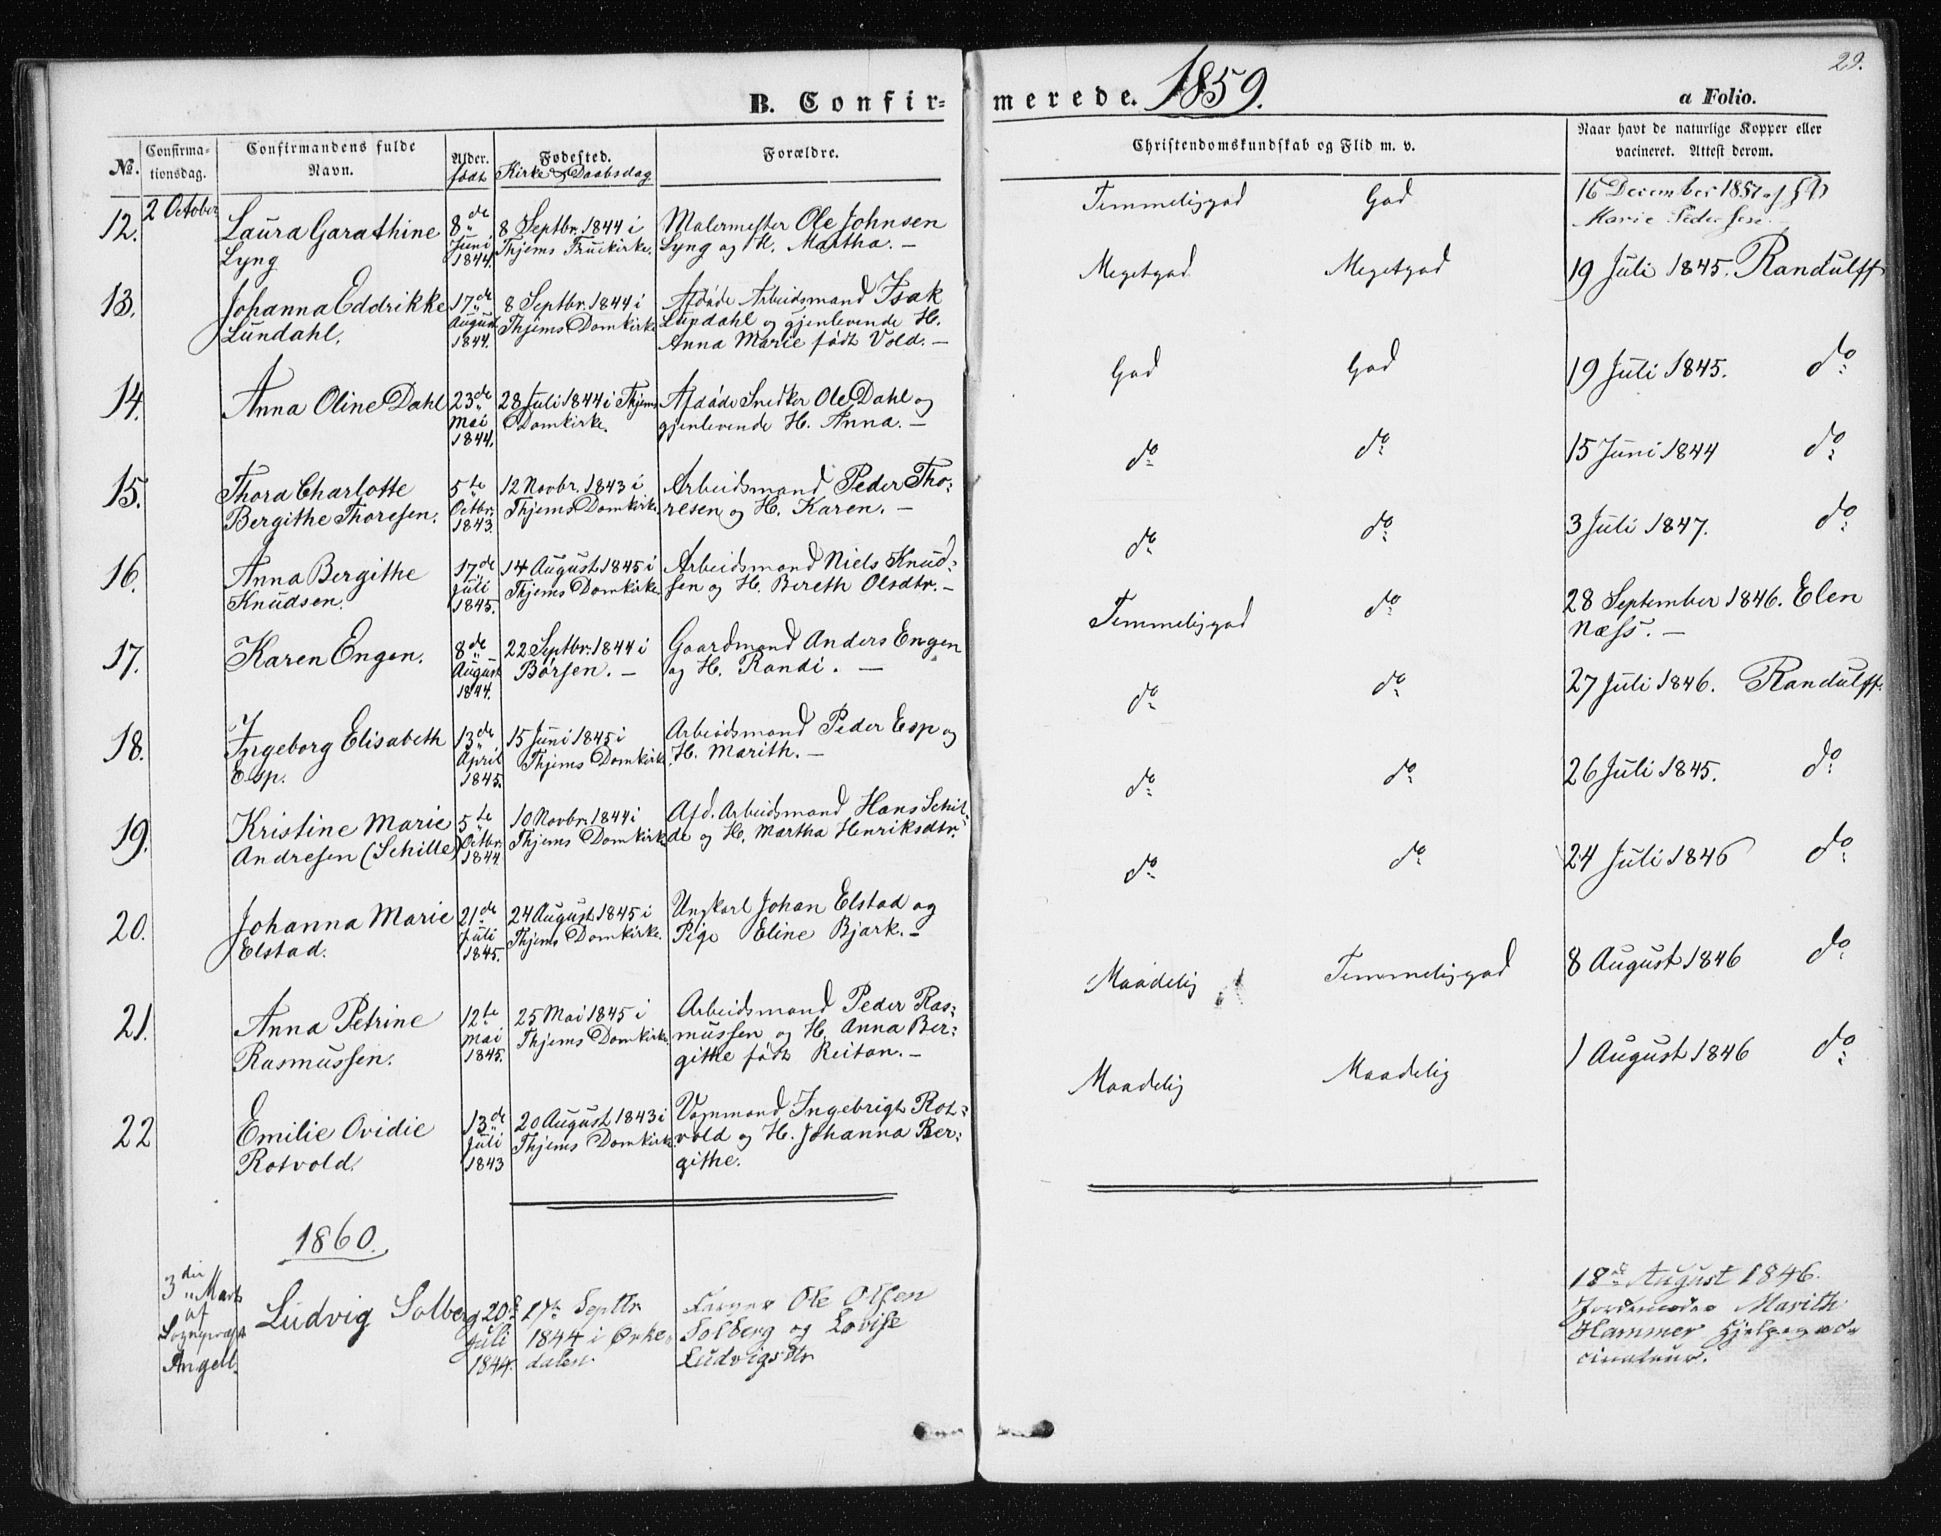 29.
B. Confirmerede. 1859.
a Folio.
No. Confirmationsdag. Confirmandens fulde Navn. Alder. født Fødested. Kirke & Daabsdag Forældre. Christendomskundskab og Flid m. v. Naar havt de naturlige Kopper eller vacineret. Attest derom.
12. 2 October Laura Garathine 8de 8 Septbr. 1844 i Malermester Ole Johnsen Temmeliggod God 16 December 1851 af
Lyng Juni 1844. Thjems Fruekirke. Lyng og H. Martha. — Marie Pedersen
13. Johanna Eddrikke 17de 8 Septbr. 1844 i Afdøde Arbeidsmand Isak Megetgod Megetgod 19 Juli 1845. Randulff
Lundahl. August 1844. Thjems Domkirke Lundahl og gjenlevende H.
Anna Marie født Vold. —
14. Anna Oline Dahl 23de 28 Juli 1844 i Thjems Afdøde Snedker Ole Dahl og God God 19 Juli 1845. do
Mai 1844. Domkirke. gjenlevende H. Anna. —
15. Thora Charlotte 5te 12 Novbr. 1843 i Arbeidsmand Peder Tho- do do 15 Juni 1844 do
Bergithe Thoresen. Octbr. 1843. Thjems Domkirke. resen og H. Karen. —
16. Anna Bergithe 17de 14 August 1845 i Arbeidsmand Niels Knud- do do 3 Juli 1847. do
Knudsen. Juli 1845. Thjems Domkirke sen og H. Bereth Olsdtr. —
17. Karen Engen. 8de 22 Septbr. 1844 i Gaardmand Anders Engen Temmeliggod do 28 September 1846. Elen
August 1844. Børsen. — og H. Randi. — Næss. —
18. Ingeborg Elisabeth 13de 15 Juni 1845 i Arbeidsmand Peder Esp og do do 27 Juli 1846. Randulff.
Esp. April 1845. Thjems Domkirke H. Marith. —
19. Kristine Marie 5te 10 Novbr. 1844 i Afd. Arbeidsmand Hans Schil- do do 26 Juli 1845. do
Andresen (Schille) Octbr. 1844. Thjems Domkirke de og H. Martha Henriksdtr.
20. Johanna Marie 21de 24 August 1845 i Ungkarl Johan Elstad og do do 24 Juli 1846 do
Elstad. Juli 1845. Thjems Domkirke. Pige Eline Bjark. —
21. Anna Petrine 12te 25 Mai 1845 i Arbeidsmand Peder Ras- Maadelig Temmeliggod 8 August 1846 do
Rasmussen. Mai 1845. Thjems Domkirke mussen og H. Anna Ber-
githe født Reitan. —
22 Emilie Ovidie 13de 20 August 1843 i Vognmand Ingebrigt Rot- Maadelig Maadelig 1 August 1846 do
Rotvold. Juli 1843 Thjems Domkirke vold og H. Johanna Ber-
githe.
1860.
3die Marts Ludvig Solberg 20de 17de Septbr. Ole Olsen 18de August 1846.
af Juli 1844 i Orke- Solberg og Lovise Jordemoder Marith
Sogneprest 1844. dalen. Ludvigsdtr Hammer Hjelpevac-
Angell. cinateur.